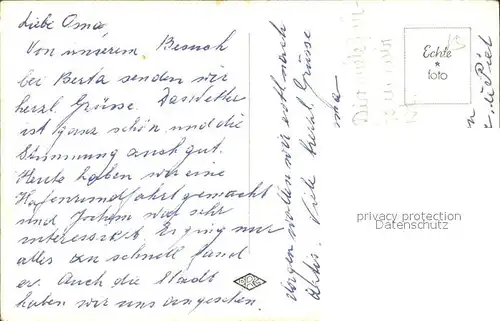 Liebe Oma,
Von unserem Besuch
bei Berta senden wir
herzl. Grüsse. Das Wetter
ist ganz schön und die
Stimmung auch gut.
Heute haben wir eine
Hafenrundfahrt gemacht
und Jochem war sehr
interessiert. Er ging nur
alles zu schnell fand
er. Auch die Stadt
haben wir uns angesehen.
Morgen wollen wir evtl. nach
Viele herzl. Grüsse
Echte
*
foto
privacy protection
Datenschutz